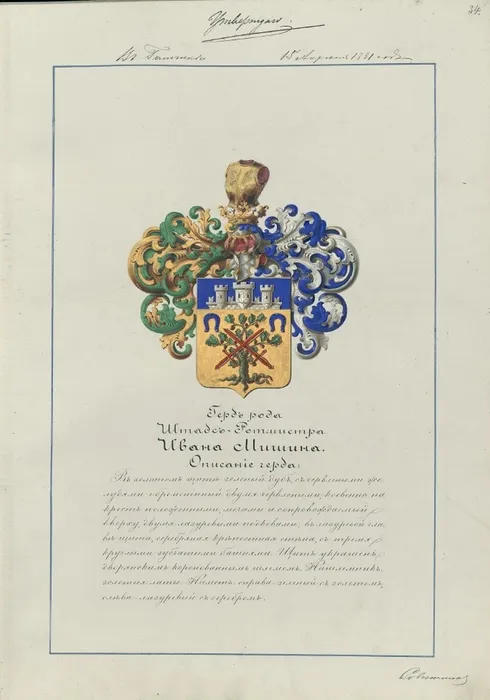 34.
Утверждаю.
Въ Гатчинѣ
15 Апрѣля 1881 года
Гербъ рода
Штабсъ-Ротмистра
Ивана Мишина.
Описаніе герба:
Въ золотомъ щитѣ зеленый дубъ, съ червлеными же-
лудями обремененный двумя червлеными, косвенно на
крестъ положенными, мечами и сопровождаемый
вверху, двумя лазуревыми подковами; въ лазуревой гла-
вѣ щита, серебряная крѣпостная стѣна, съ тремя
круглыми зубчатыми башнями. Щитъ украшенъ
дворянскимъ коронованнымъ шлемомъ. Нашлемникъ,
золотыя латы. Наметъ: справа зеленый съ золотомъ,
слѣва лазуревый съ серебромъ.